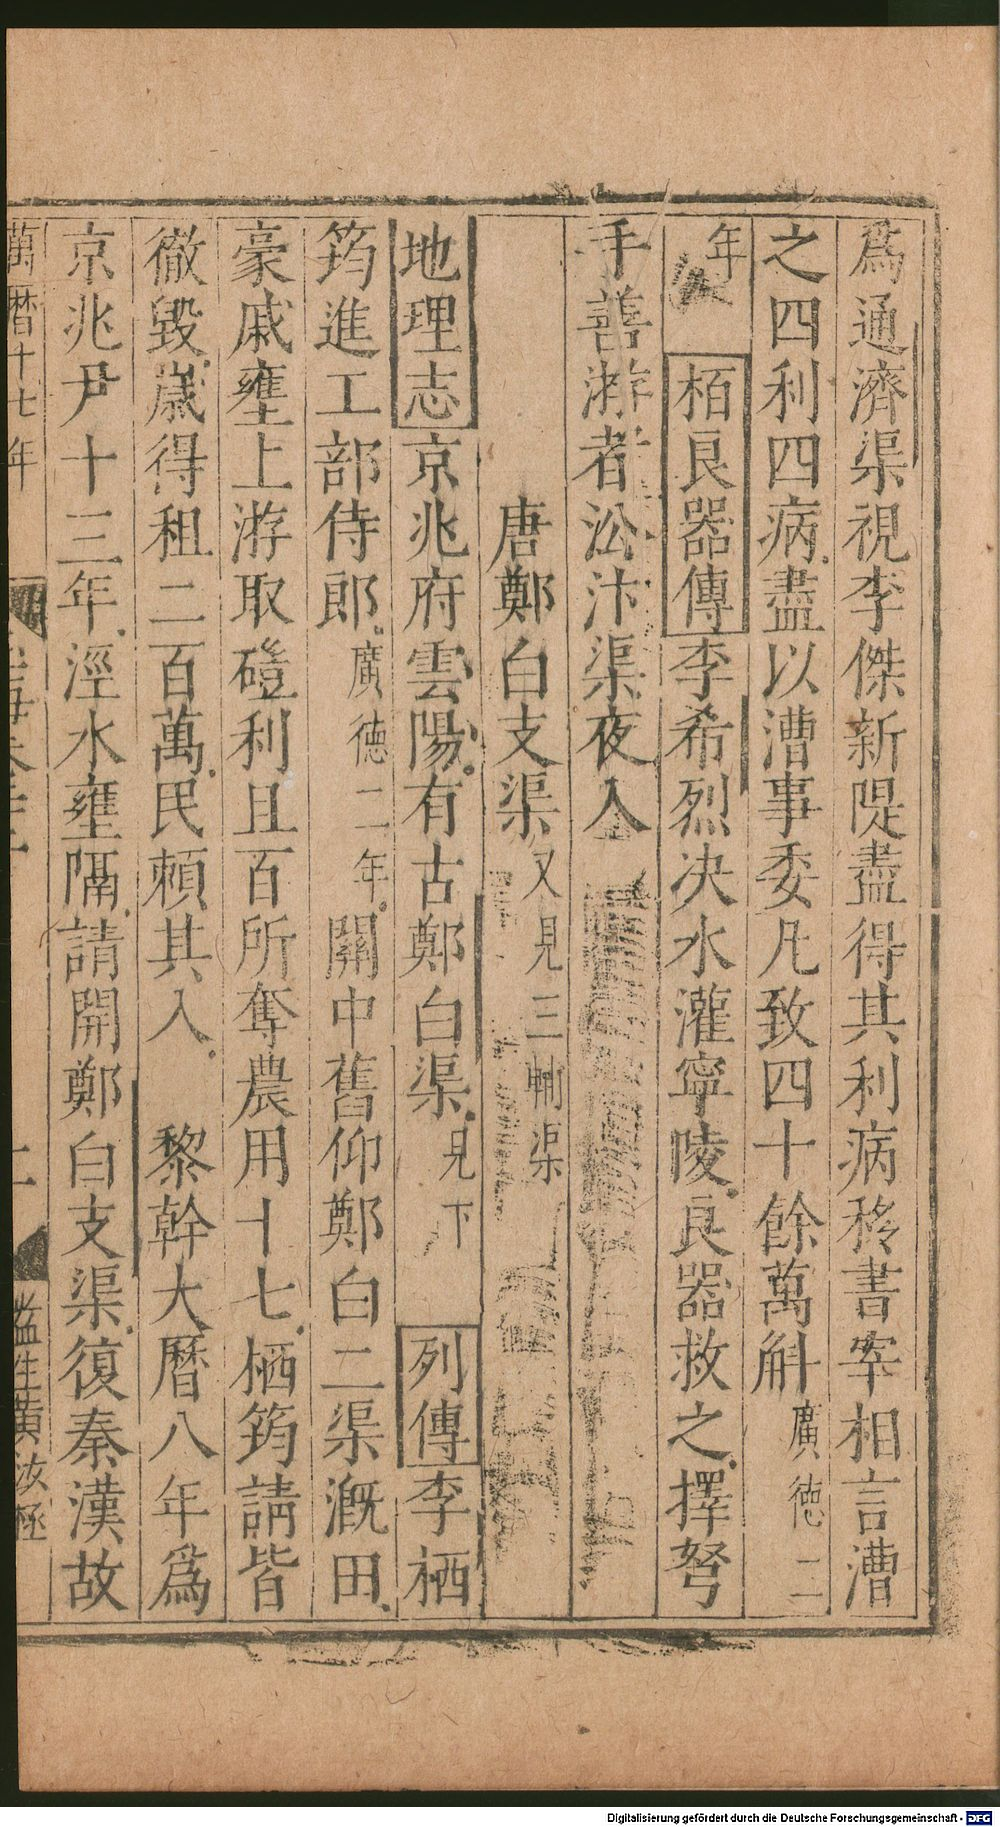 爲通濟渠視李傑新隄盡得其利病移書宰相言漕
之四利四病盡以漕事委凡致四十餘萬斛廣德二
年 栢良器傳李希烈決水灌寧陵良器救之擇弩
手善游者㳂汴渠夜入
唐鄭白支渠又見三輔渠
地理志京兆府雲陽有古鄭白渠見下 列傳李栖
筠進工部侍郎廣德二年關中舊仰鄭白二渠漑田
豪戚壅上游取磑利且百所奪農用十七栖筠請皆
徹毀歲得租二百萬民賴其入 黎幹大曆八年爲
京兆尹十三年涇水壅隔請開鄭白支渠復秦漢故
萬曆十七年 監生黃汝極
Digitalisierung gefördert durch die Deutsche Forschungsgemeinschaft - DFG